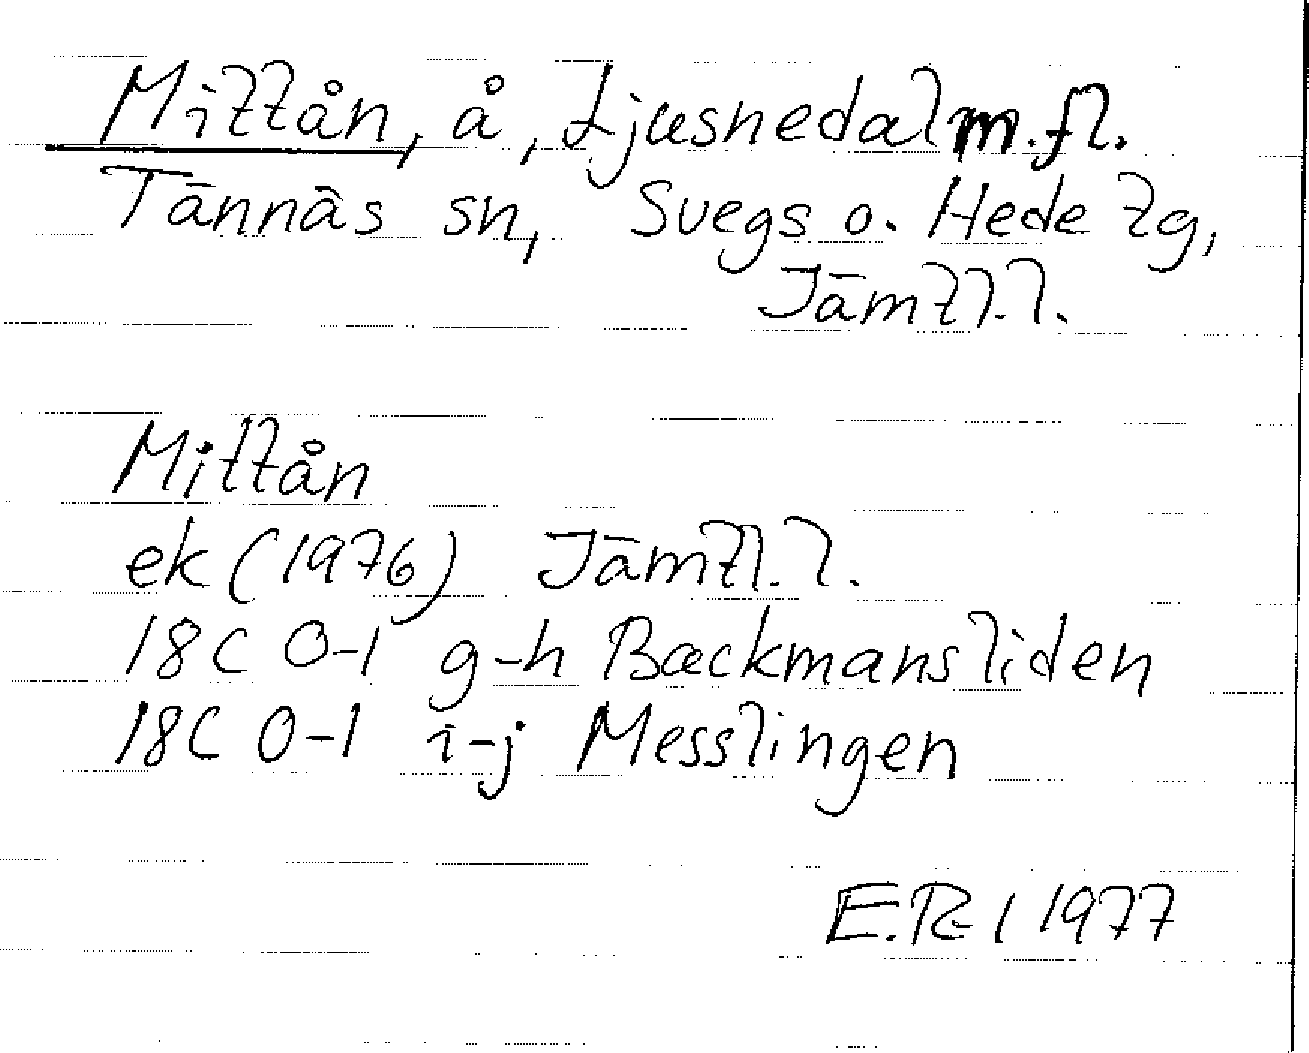 Mittån, å, Ljusnedal m.fl.
Tännäs sn, Svegs o. Hede tg,
Jämtl.l.
Mittån
ek (1976) Jämtl.l.
18C 0-1 g-h Backmansliden
18C 0-1 i-j Messlingen
E.R. 1977